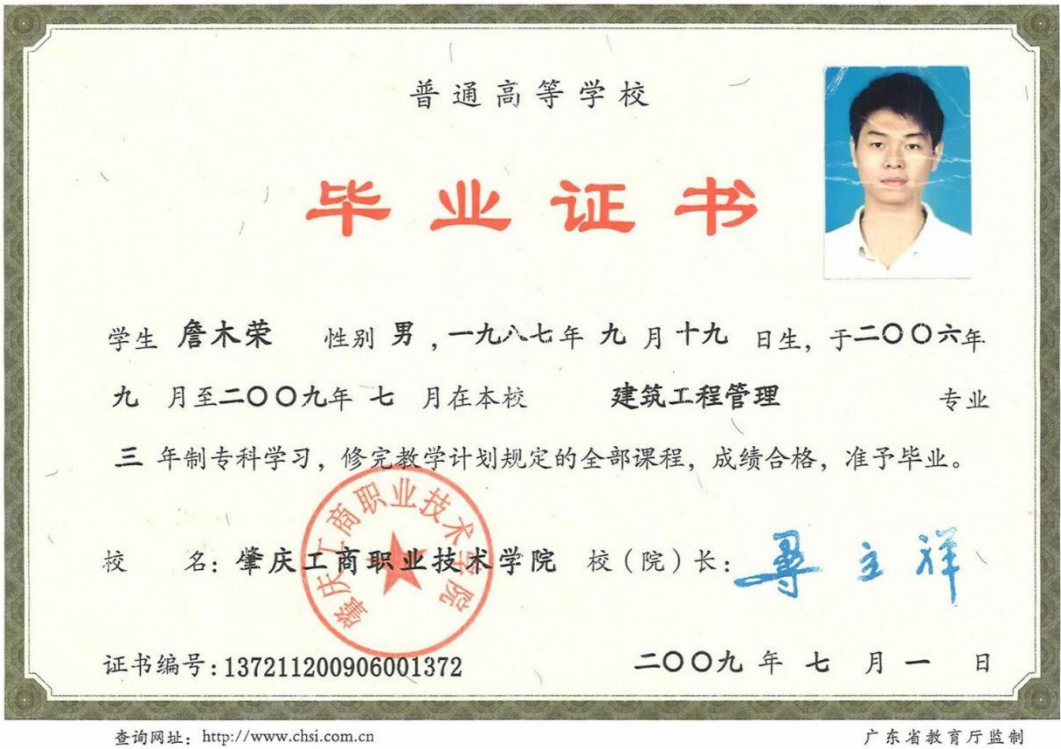 普通高等学校
毕业证书
学生 詹木荣 性别 男 ，一九八七年 九 月 十九 日生，于二〇〇六年
九 月至二〇〇九年 七 月在本校 建筑工程管理 专业
三 年制专科学习，修完教学计划规定的全部课程，成绩合格，准予毕业。
肇庆工商职业技术学院
校 名：肇庆工商职业技术学院 校（院）长：
证书编号：137211200906001372 二〇〇九 年 七 月 一 日
查询网址：http://www.chsi.com.cn 广东省教育厅监制